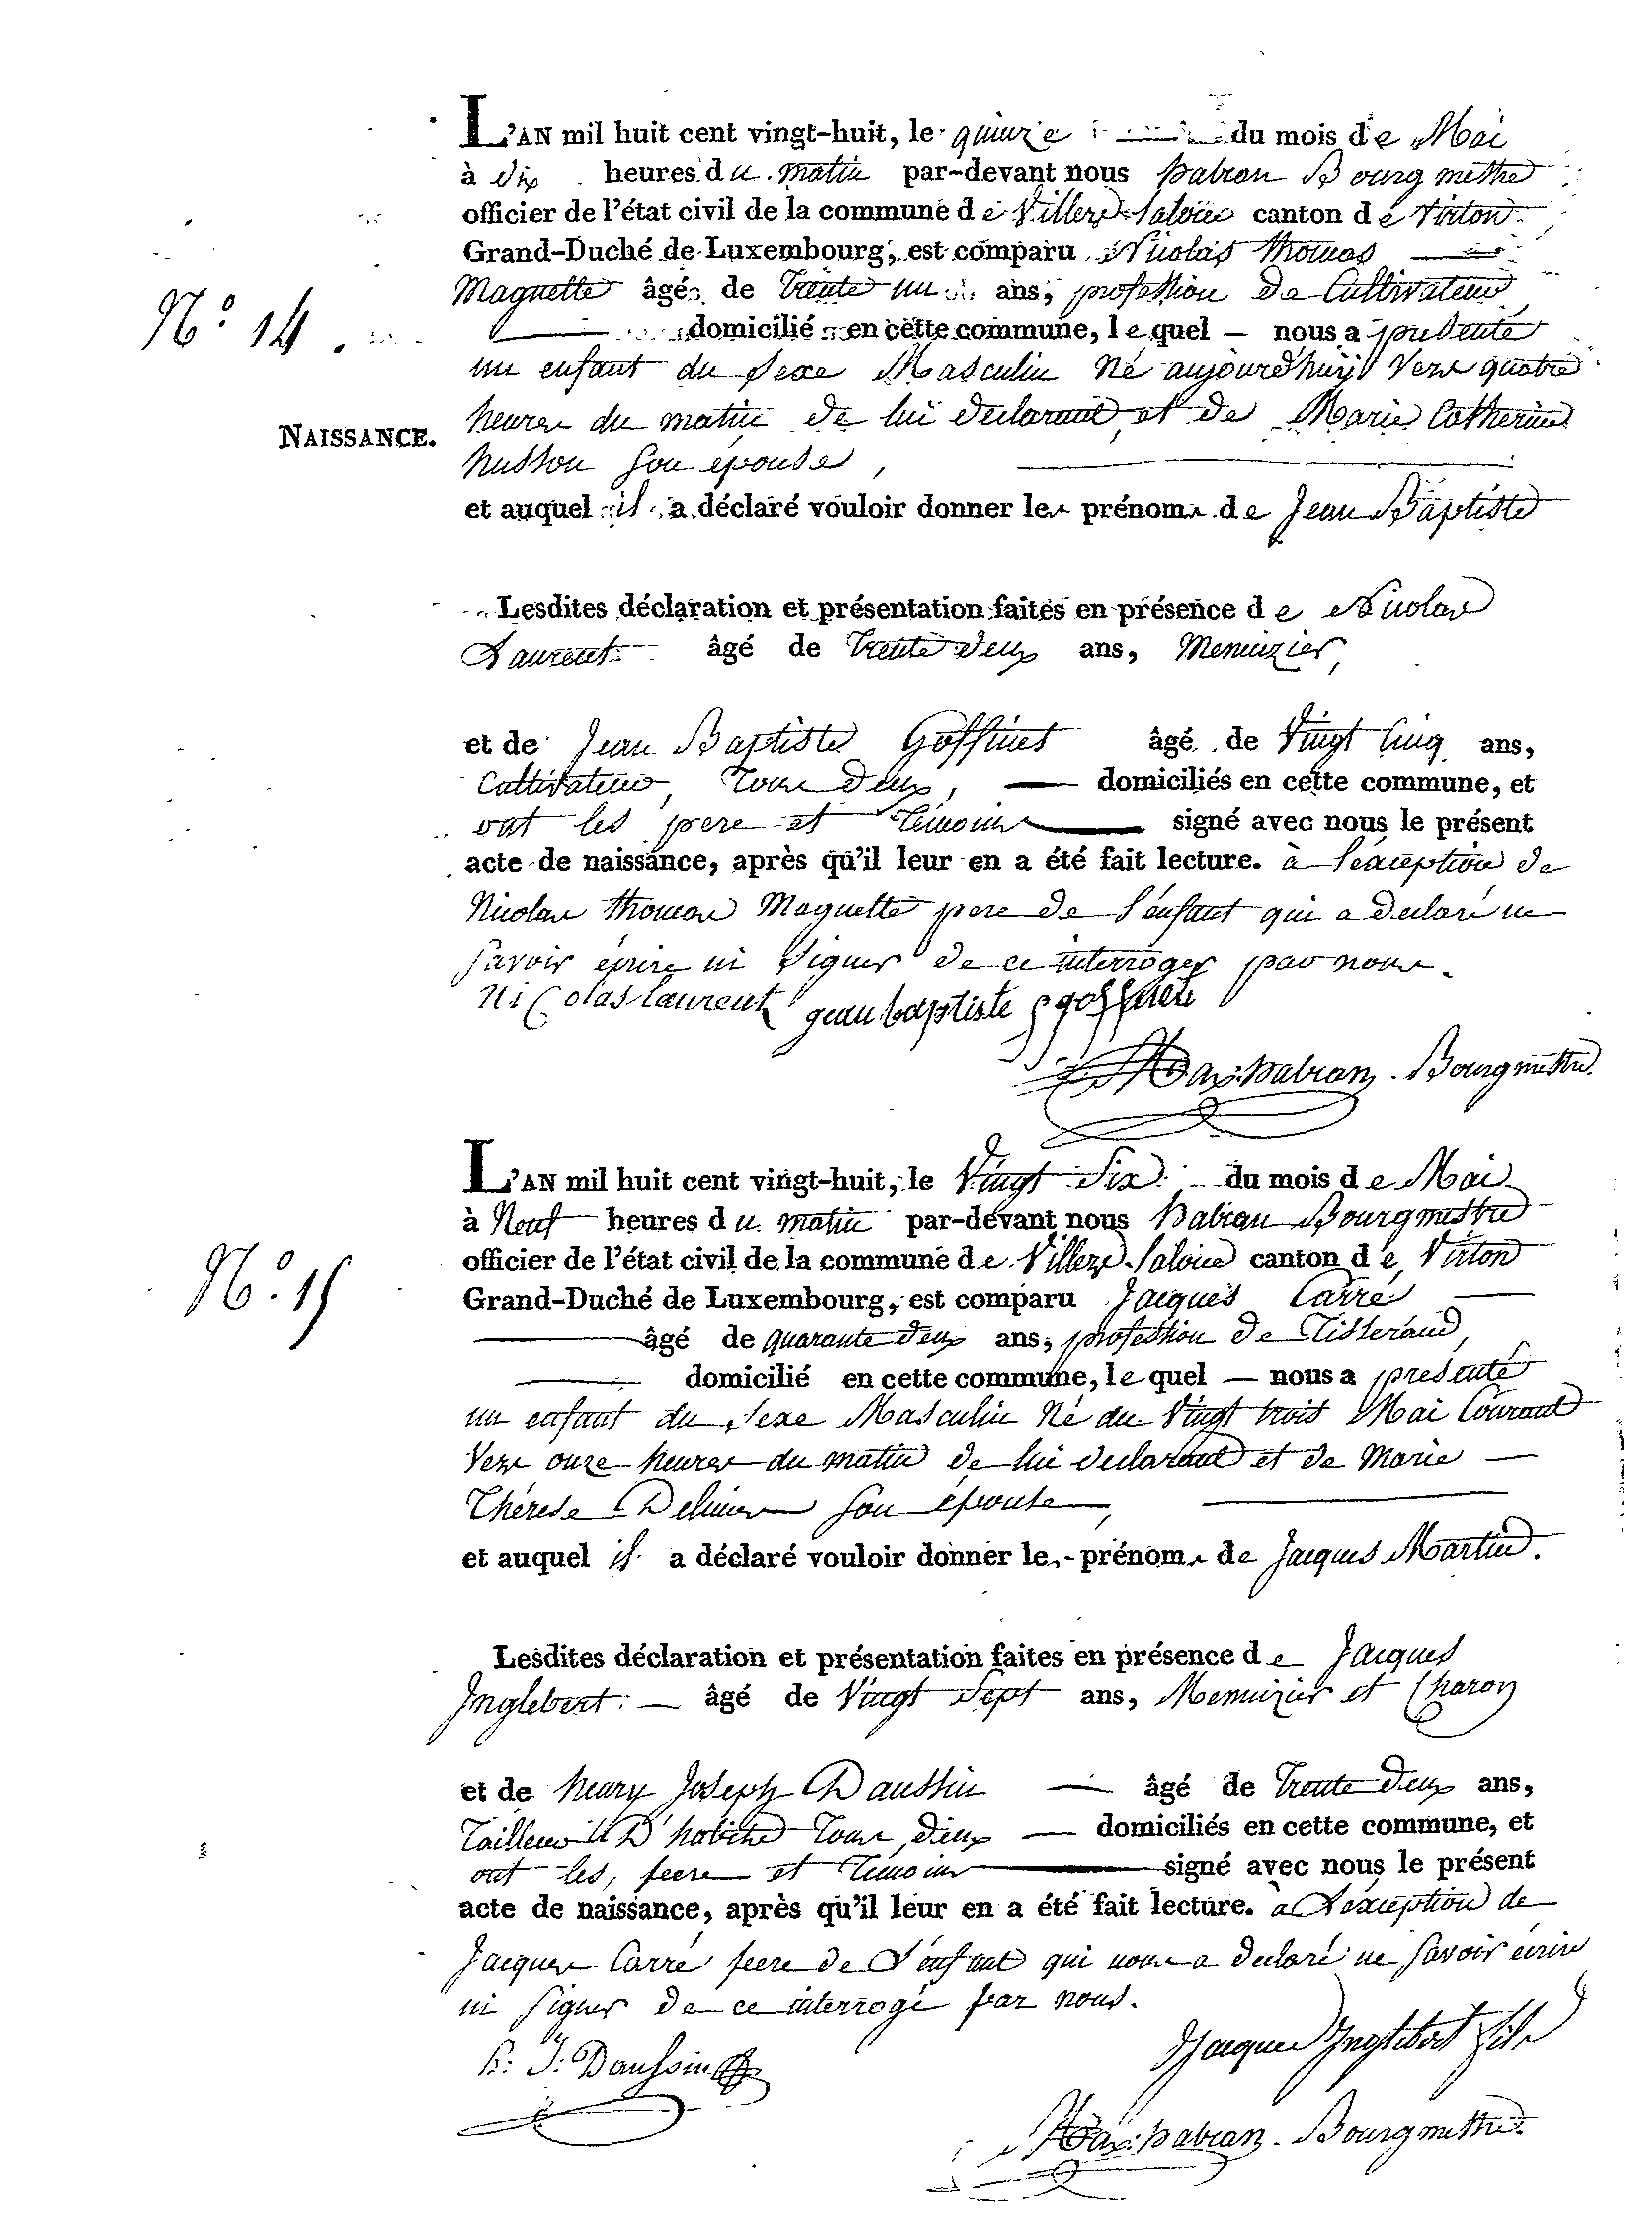 L'AN mil huit cent vingt-huit, le quinze du mois de Mai
à dix heures du matin par-devant nous habran Bourgmettre
officier de l'état civil de la commune de Villers canton de Virton
Grand-Duché de Luxembourg, est comparu Nicolas thomas
Maguette âgé de Trente un ans, profession de Cultivateur
N.° 14.
domicilié en cette commune, lequel — nous a presenté
un enfant du sexe Masculin né aujourd'huy vers quatre
heures du matin de lui declarant et de Marie Catherine
NAISSANCE.
husson son épouse,
et auquel il a déclaré vouloir donner les prénoms de Jean Baptiste
Lesdites déclaration et présentation faites en présence de Nicolas
Laurent âgé de Trente deux ans, Menuizier,
et de Jean Baptiste Goffinet âgé de Vingt Cinq ans,
Cultivateur, Tous deux, — domiciliés en cette commune, et
ont les pere et Témoins signé avec nous le présent
acte de naissance, après qu'il leur en a été fait lecture. à l'éxception de
Nicolas thomas Maguette pere de l'énfant qui a declaré ne
savoir écrire ni signer de ce interroger par nous.
Nicolas laurent jean baptiste goffinet
Max: habran. Bourgmettre.
L'AN mil huit cent vingt-huit, le Vingt Six du mois de Mai
à Neuf heures du matin par-devant nous habran Bourgmettre
officier de l'état civil de la commune de Villers canton de Virton
N.° 15
Grand-Duché de Luxembourg, est comparu Jacques Carré —
âgé de quarante deux ans, profession de Tisserand,
domicilié en cette commune, lequel — nous a presenté
un enfant du sexe Masculin né du Vingt trois Mai Courant
Vers onze heures du matin de lui declarant et de Marie —
Thérese son épouse,
et auquel il a déclaré vouloir donner les prénoms de Jacques Martin.
Lesdites déclaration et présentation faites en présence de Jacques
Inglebert. — âgé de Vingt Sept ans, Menuizier et Charon
et de henry Joseph Daussin — âgé de Trente deux ans,
Tailleur D'habits Tous deux — domiciliés en cette commune, et
ont les, peere et Témoins signé avec nous le présent
acte de naissance, après qu'il leur en a été fait lecture. a L'éxception de
Jacques Carré peere de L'énfant qui nous a declaré ne savoir écrire
ni signer de ce interrogé par nous.
Jacques Inglebert fils
h: J: Daussin
Max: habran. Bourgmettre.